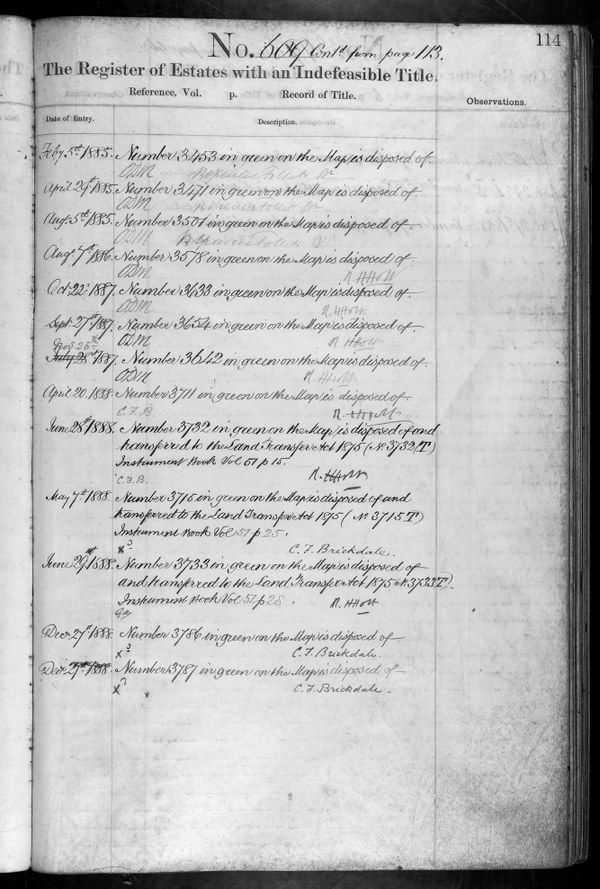 114
No. 609 Contd from page 113.
The Register of Estates with an Indefeasible Title.
Reference, Vol. p. Record of Title.
Observations.
Date of Entry. Description.
Feby 5th 1885. Number 3453 in green on the Map is disposed of
ODM
April 29th 1885. Number 3471 in green on the Map is disposed of
ODM
Augt 5th 1885. Number 3501 in green on the Map is disposed of
ODM
Augt 7th 1886. Number 3578 in green on the Map is disposed of
ODM R. H. Holt
Oct 22d 1887. Number 3633 in green on the Map is disposed of
ODM R. H. Holt
Sept 27th 1887. Number 3654 in green on the Map is disposed of
ODM R. H. Holt
July 28th 1887. Number 3642 in green on the Map is disposed of
ODM R. H. Holt
April 20. 1888. Number 3711 in green on the Map is disposed of
C. F. B. R. H. Holt
June 28th 1888. Number 3732 in green on the Map is disposed of and
transferred to the Land Transfer Act 1875 (No 3732 T)
Instrument Book Vol 57 p 15.
C. F. B. R. H. Holt
May 7th 1888. Number 3715 in green on the Map is disposed of and
transferred to the Land Transfer Act 1875 (No 3715 T)
Instrument Book Vol 57 p 25.
C. F. Brickdale.
June 29th 1888. Number 3733 in green on the Map is disposed of
and transferred to the Land Transfer Act 1875 (No 3733 T).
Instrument Book Vol 57 p 28. R. H. Holt
Decr 27th 1888. Number 3786 in green on the Map is disposed of
C. F. Brickdale.
Decr 27th 1888. Number 3787 in green on the Map is disposed of
C. F. Brickdale.